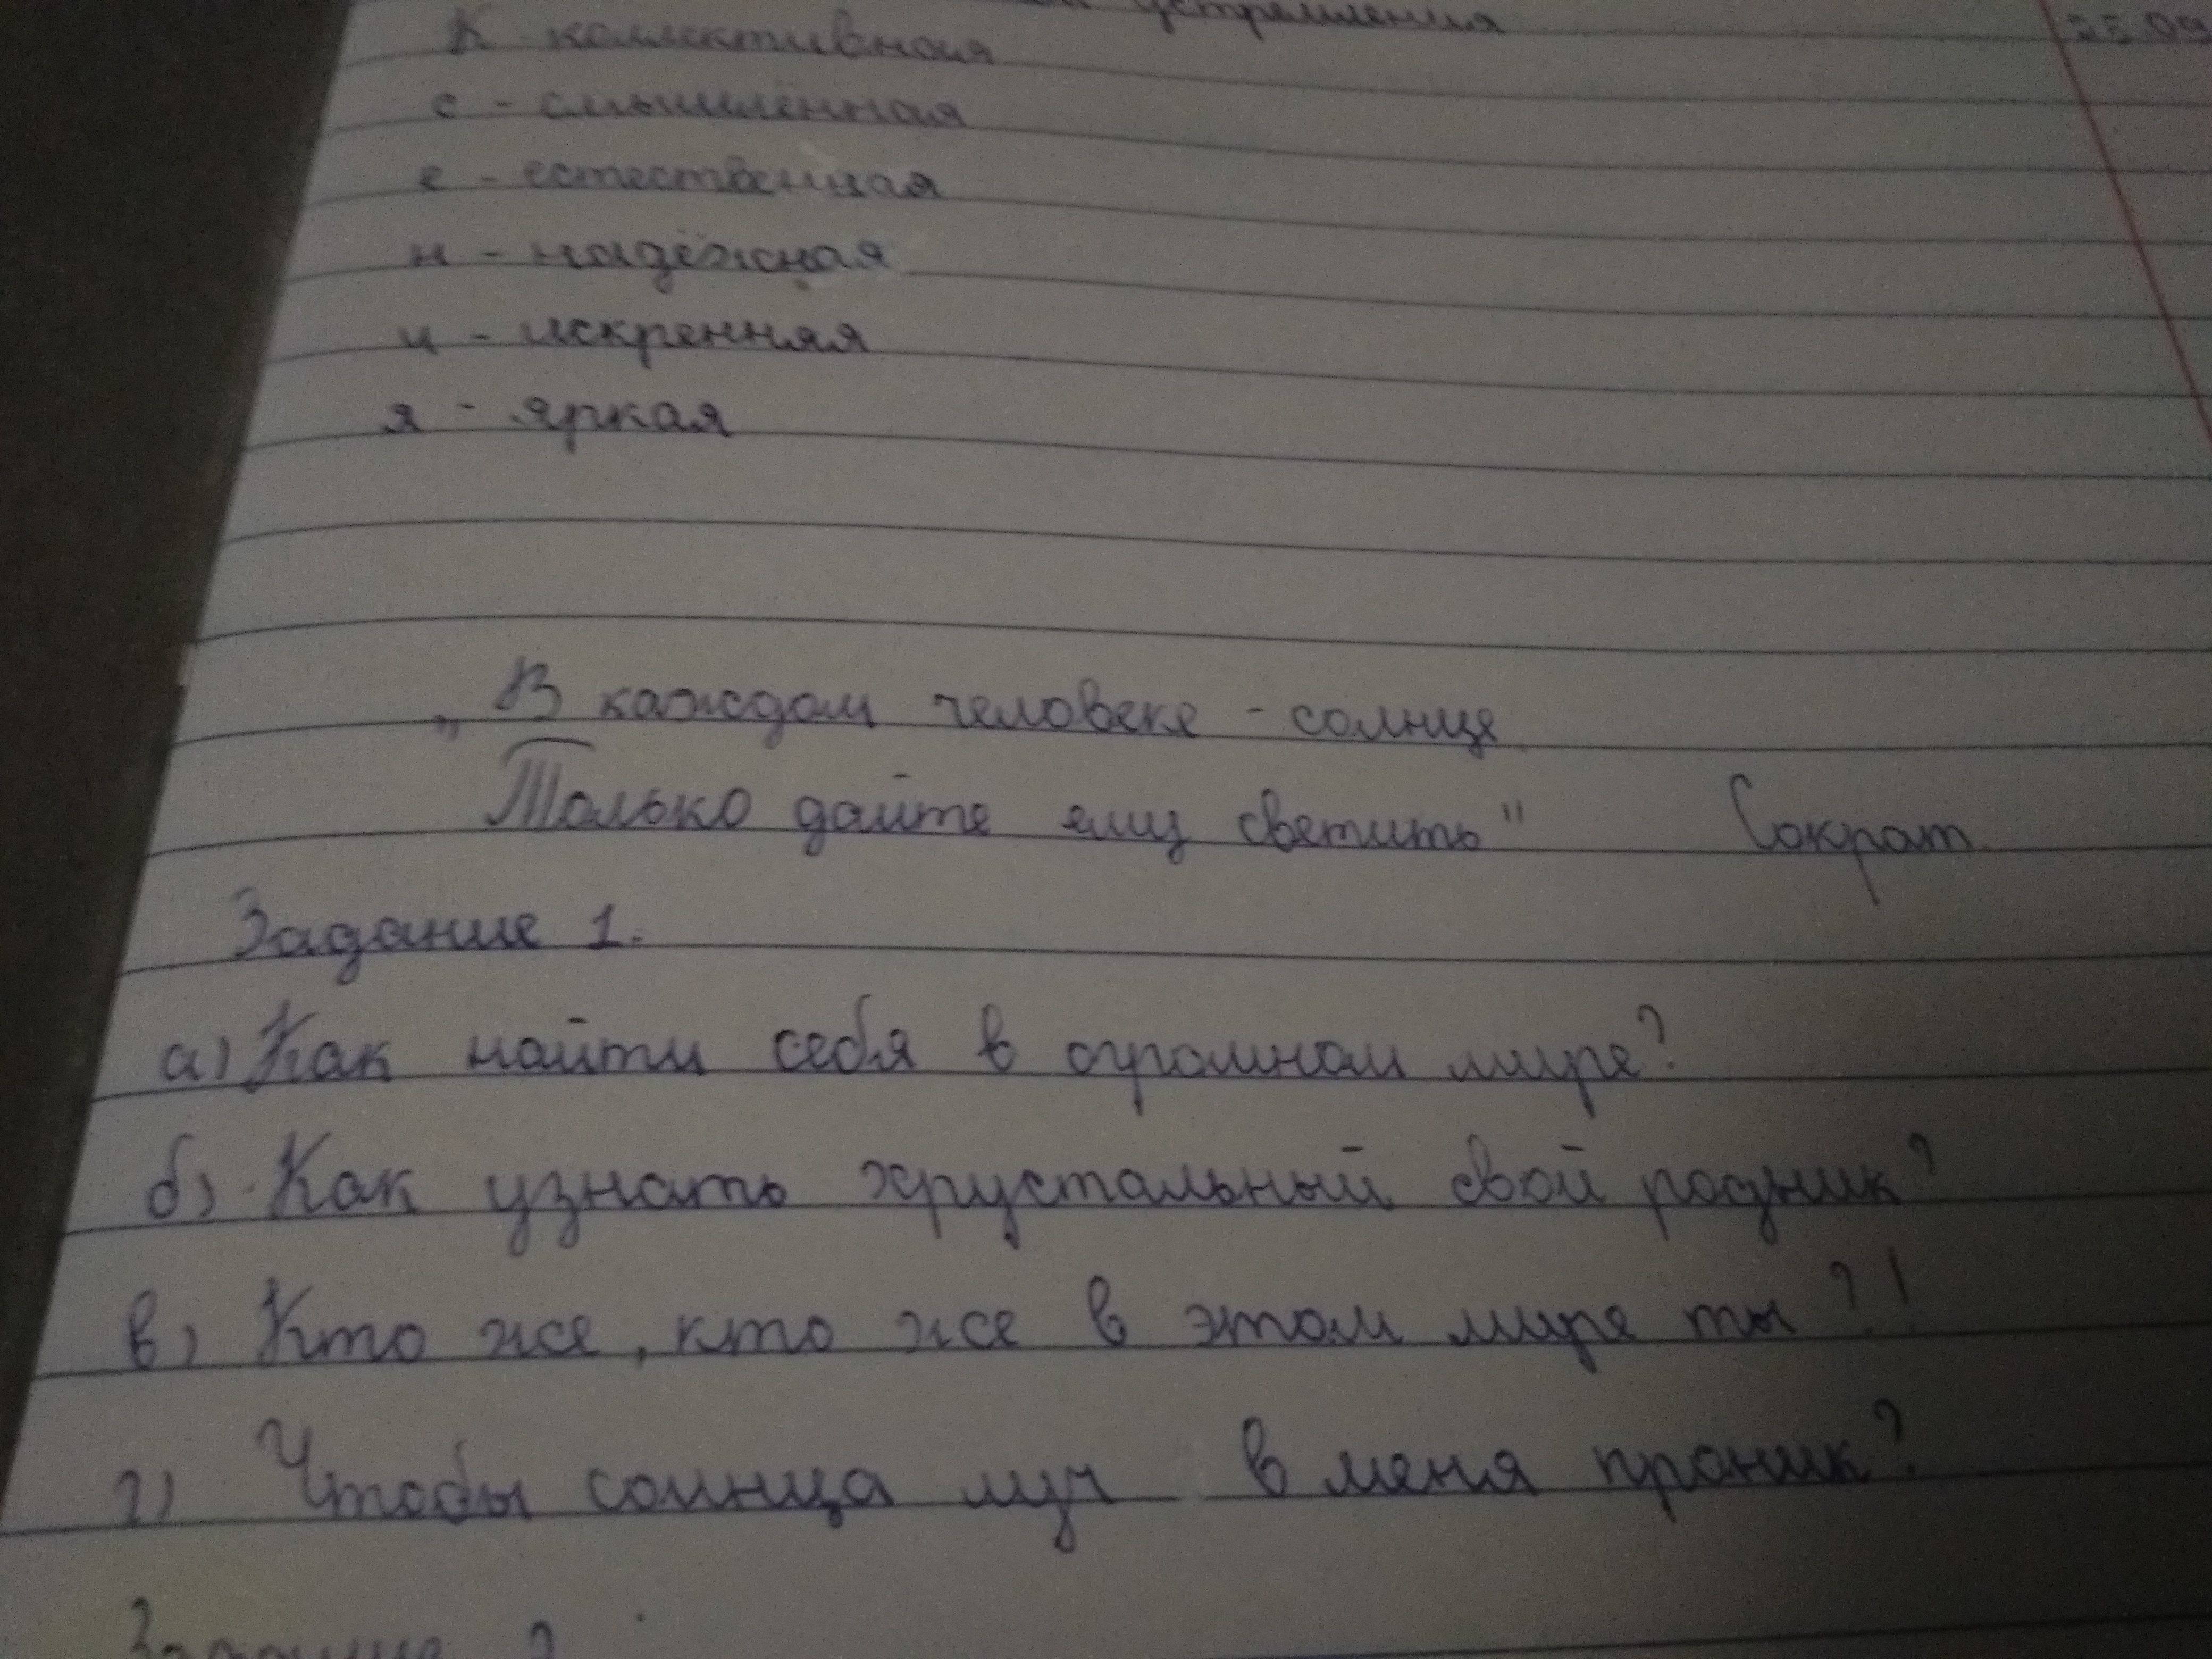 устремления 25.09
К коллективная
с - смышлённая
е - естественная
н - надёжная
и - искренняя
я - яркая
„В каждом человеке - солнце
Только дайте ему светить" Сократ
Задание 1.
а) Как найти себя в огромном мире?
б) Как узнать хрустальный свой родник?
в) Кто же, кто же в этом мире ты?!
г) Чтобы солнца луч в меня проник?
Задание 2